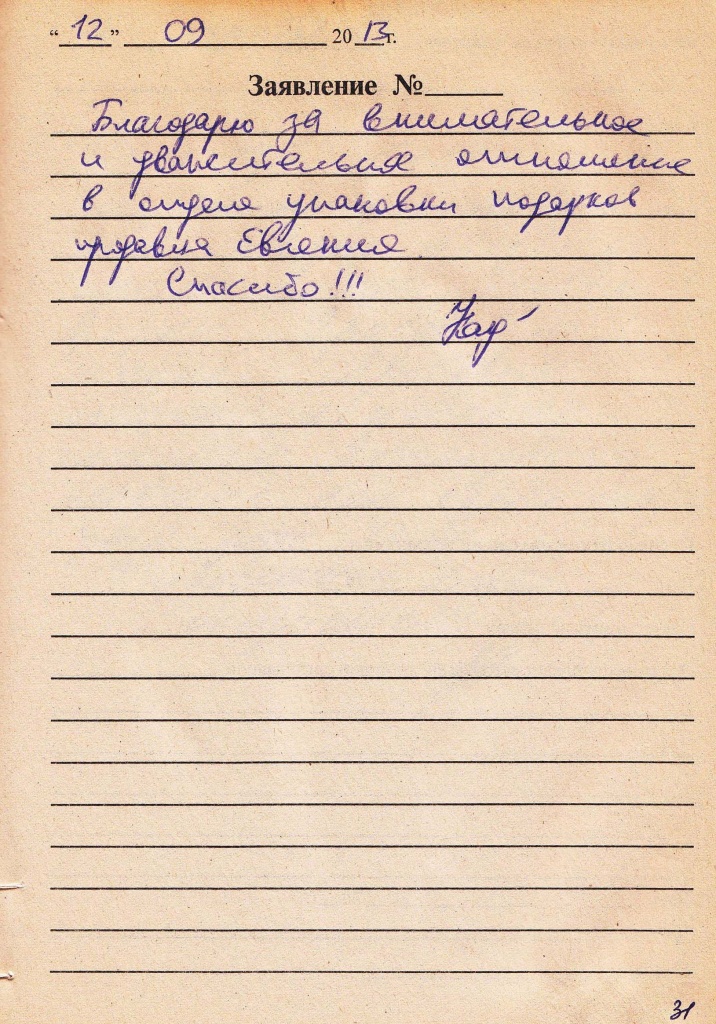 "12" 09 2013г.
Заявление №
Благодарю за внимательное
и уважительное отношение
в отделе упаковки подарков
продавца Евгения
Спасибо!!!
31